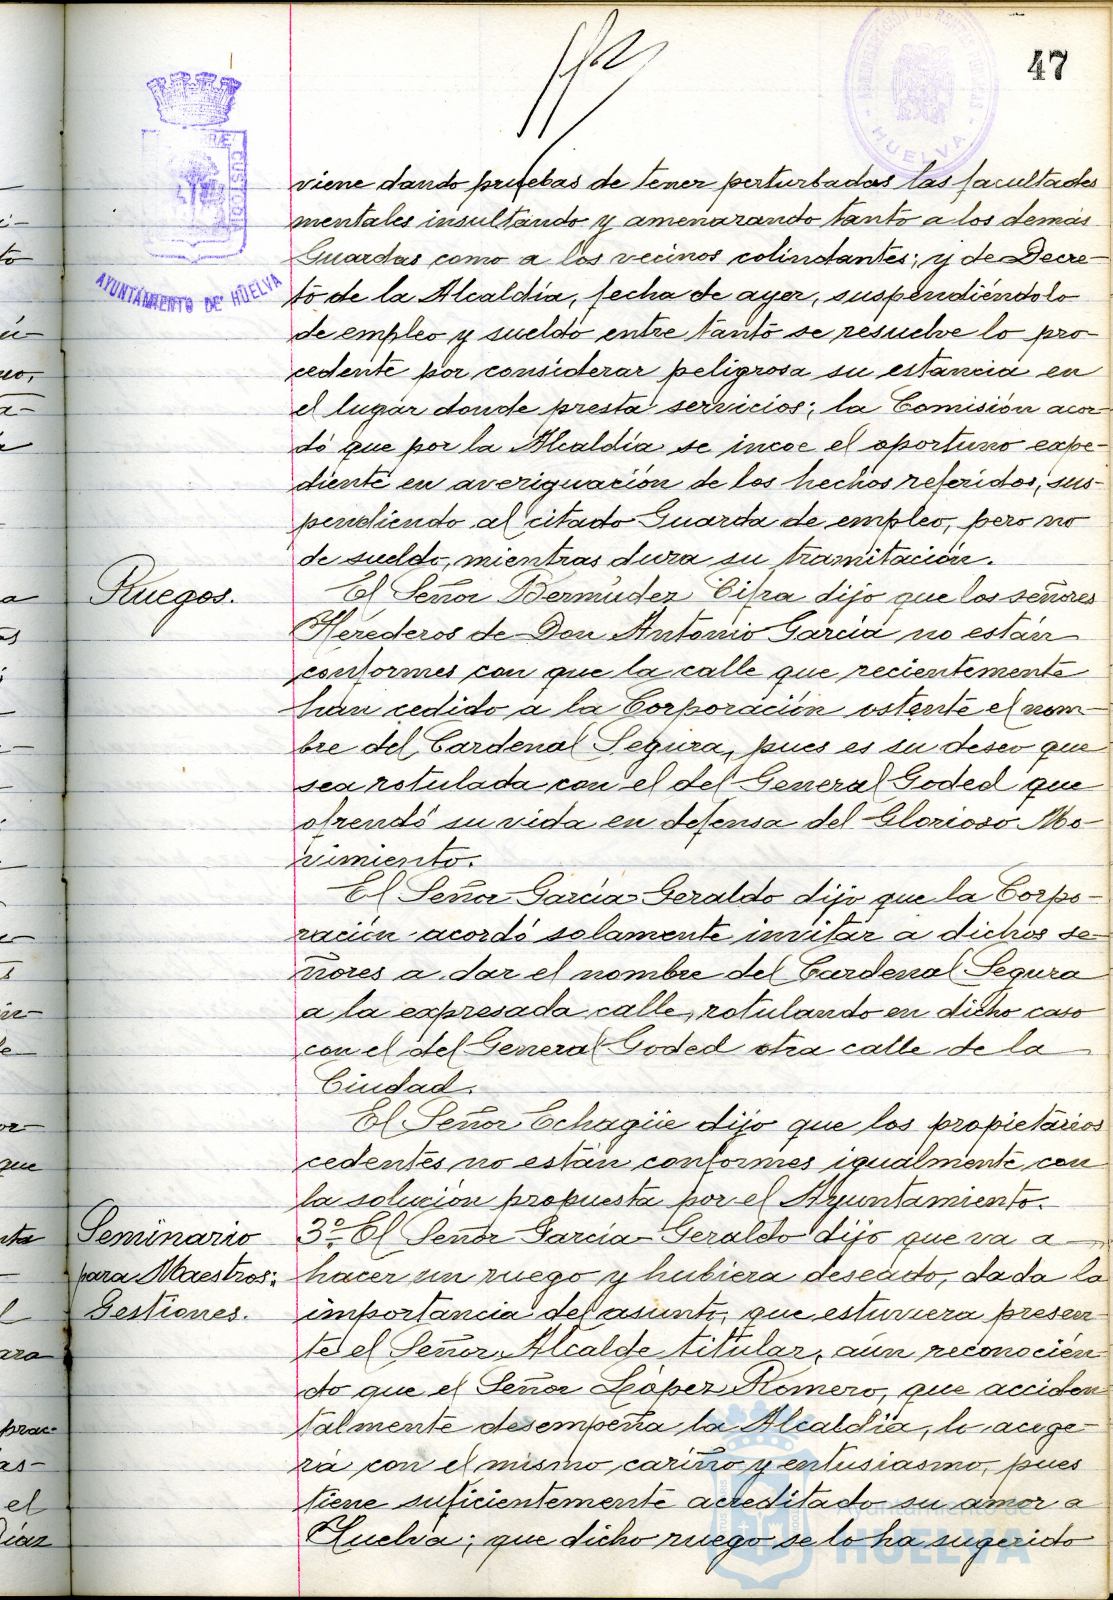 47
ADMINISTRACION DE RENTAS PUBLICAS
- HUELVA -
CUSTODIA
AYUNTAMIENTO DE HUELVA
viene dando pruebas de tener perturbadas las facultades
mentales insultando y amenazando tanto a los demás
Guardas como a los vecinos colindantes; y de Decre-
to de la Alcaldía, fecha de ayer, suspendiéndolo
de empleo y sueldo entre tanto se resuelve lo pro-
cedente por considerar peligrosa su estancia en
el lugar donde presta servicios; la Comisión acor-
dó que por la Alcaldía se incoe el oportuno expe-
diente en averiguación de los hechos referidos, sus-
pendiendo al citado Guarda de empleo, pero no
de sueldo, mientras dura su tramitación.
Ruegos.
El Señor Bermúdez Cifra dijo que los señores
Herederos de Don Antonio García no están
conformes con que la calle que recientemente
han cedido a la Corporación ostente el nom-
bre del Cardenal Segura, pues es su deseo que
sea rotulada con el del General Goded que
ofrendó su vida en defensa del Glorioso Mo-
vimiento.
El Señor García-Geraldo dijo que la Corpo-
ración acordó solamente invitar a dichos se-
ñores a dar el nombre del Cardenal Segura
a la expresada calle, rotulando en dicho caso
con el del General Goded otra calle de la
Ciudad.
El Señor Echagüe dijo que los propietarios
cedentes no están conformes igualmente con
la solución propuesta por el Ayuntamiento.
Seminario
para Maestros:
Gestiones.
3º El Señor García-Geraldo dijo que va a
hacer un ruego y hubiera deseado, dada la
importancia del asunto, que estuviera presen-
te el Señor Alcalde titular, aún reconocien-
do que el Señor López Romero, que acciden-
talmente desempeña la Alcaldía, lo acoge-
rá con el mismo cariño y entusiasmo, pues
tiene suficientemente acreditado su amor a
Huelva; que dicho ruego se lo ha sugerido
Ayuntamiento de
HUELVA